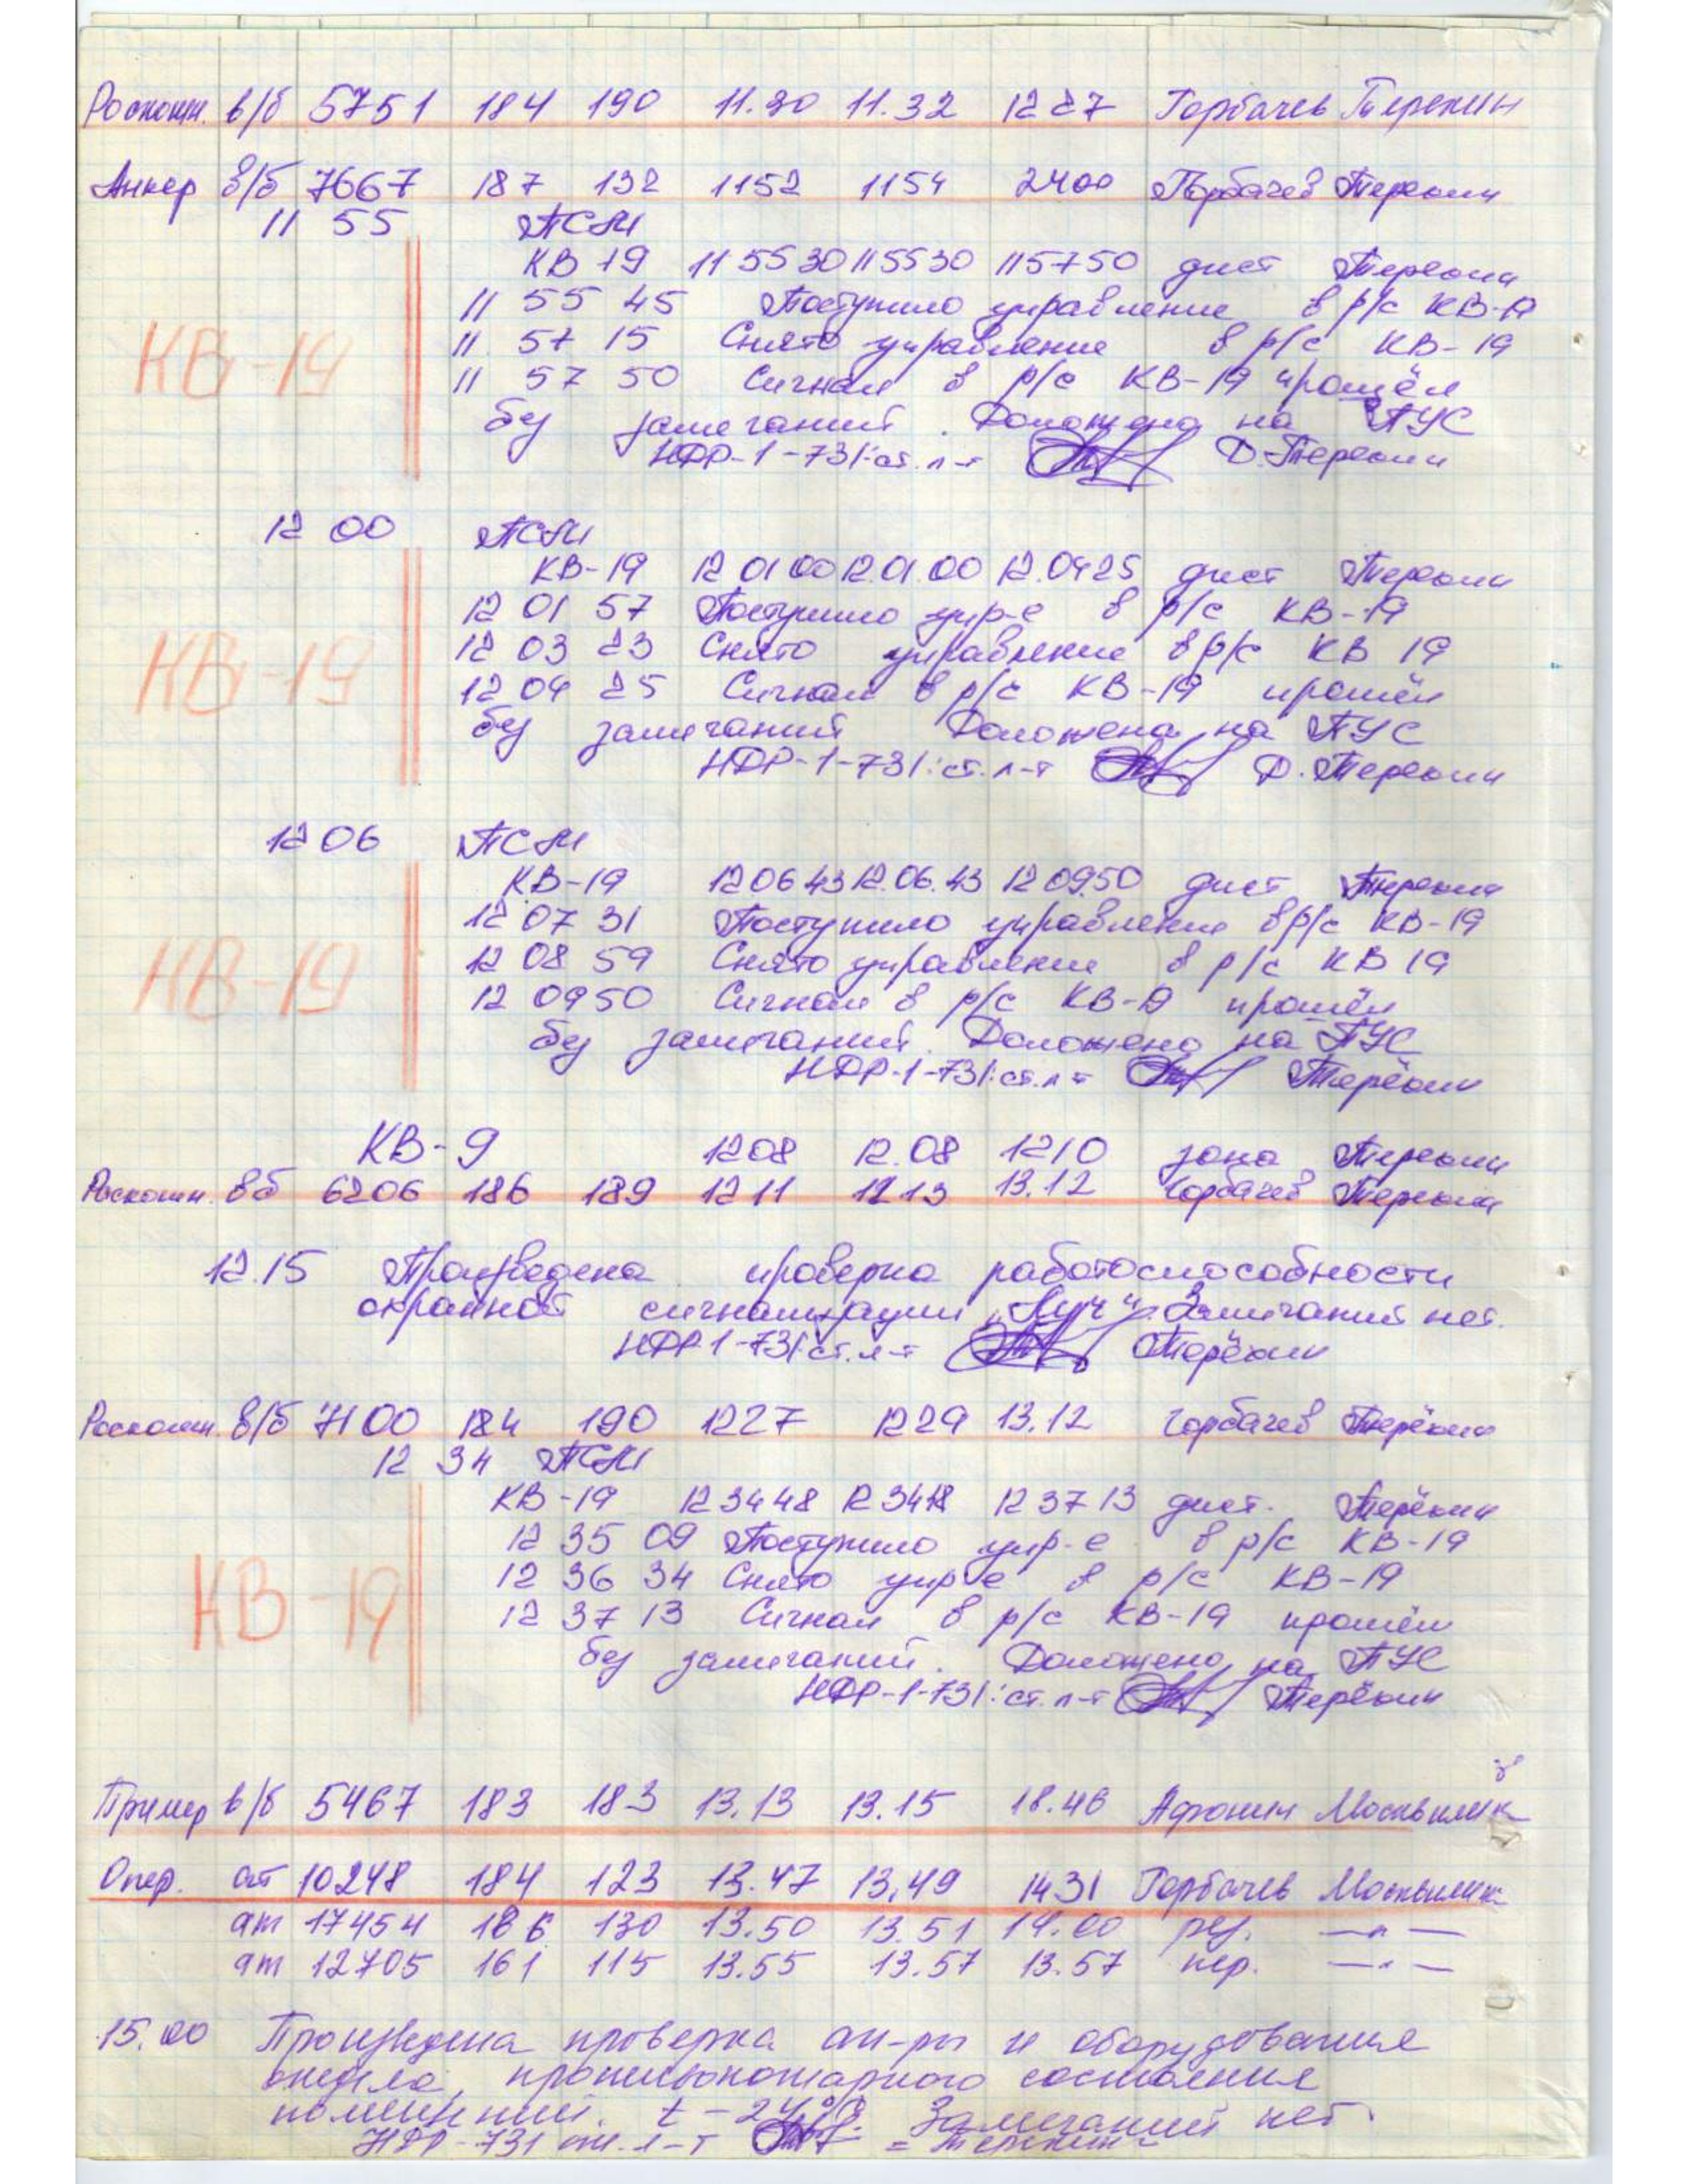 Роскошн. в/б 5751 184 190 11.30 11.32 1227 Горбачев Терехин
Анкер в/б 7667 187 132 1152 1154 2400 Горбачев Терехин
11 55 ПСМ
КВ 19 115530 115530 115750 дист Терехин
11 55 45 Поступило управление в р/с КВ-19
КВ-19
11 57 15 Снято управление в р/с КВ-19
11 57 50 Сигнал в р/с КВ-19 прошёл
без замечаний. Доложено на ПУС
НДР-1-731: ст. л-т Д. Терехин
12 00 ПСМ
КВ-19 12 01 00 12.01.00 12.0425 дист Терехин
12 01 57 Поступило упр-е в р/с КВ-19
КВ-19
12 03 23 Снято управление в р/с КВ 19
12 04 25 Сигнал в р/с КВ-19 прошёл
без замечаний Доложено на ПУС
НДР-1-731: ст. л-т Д. Терехин
12 06 ПСМ
КВ-19 120643 12.06.43 120950 дист Терехин
12 07 31 Поступило управление в р/с КВ-19
КВ-19
12 08 59 Снято управление в р/с КВ 19
12 0950 Сигнал в р/с КВ-19 прошёл
без замечаний. Доложено на ПУС
НДР-1-731: ст. л-т Терёхин
КВ-9 1208 12.08 1210 зона Терехин
Роскошн. вб 6206 186 189 1211 1213 13.12 Горбачев Терехин
12.15 Произведена проверка работоспособности
охранной сигнализации "Луч". Замечаний нет.
НДР-1-731: ст. л-т Терёхин
Роскошн. в/б 7100 184 190 1227 1229 13.12 Горбачев Терёхин
12 34 ПСМ
КВ-19 123448 123448 123713 дист. Терёхин
12 35 09 Поступило упр-е в р/с КВ-19
КВ-19
12 36 34 Снято упр-е в р/с КВ-19
12 37 13 Сигнал в р/с КВ-19 прошёл
без замечаний. Доложено на ПУС
НДР-1-731: ст. л-т Терёхин
Пример в/б 5467 183 183 13.13 13.15 18.46 Афонин
Опер. ат 10248 184 123 13.47 13.49 1431 Горбачев
ат 17454 186 130 13.50 13.51 14.00 рез. —"—
ат 12705 161 115 13.55 13.57 13.57 пер. —"—
15.00 Произведена проверка ап-ры и оборудования
противопожарного состояния
помещений. Замечаний нет.
НДР-731 ст. л-т Терехин